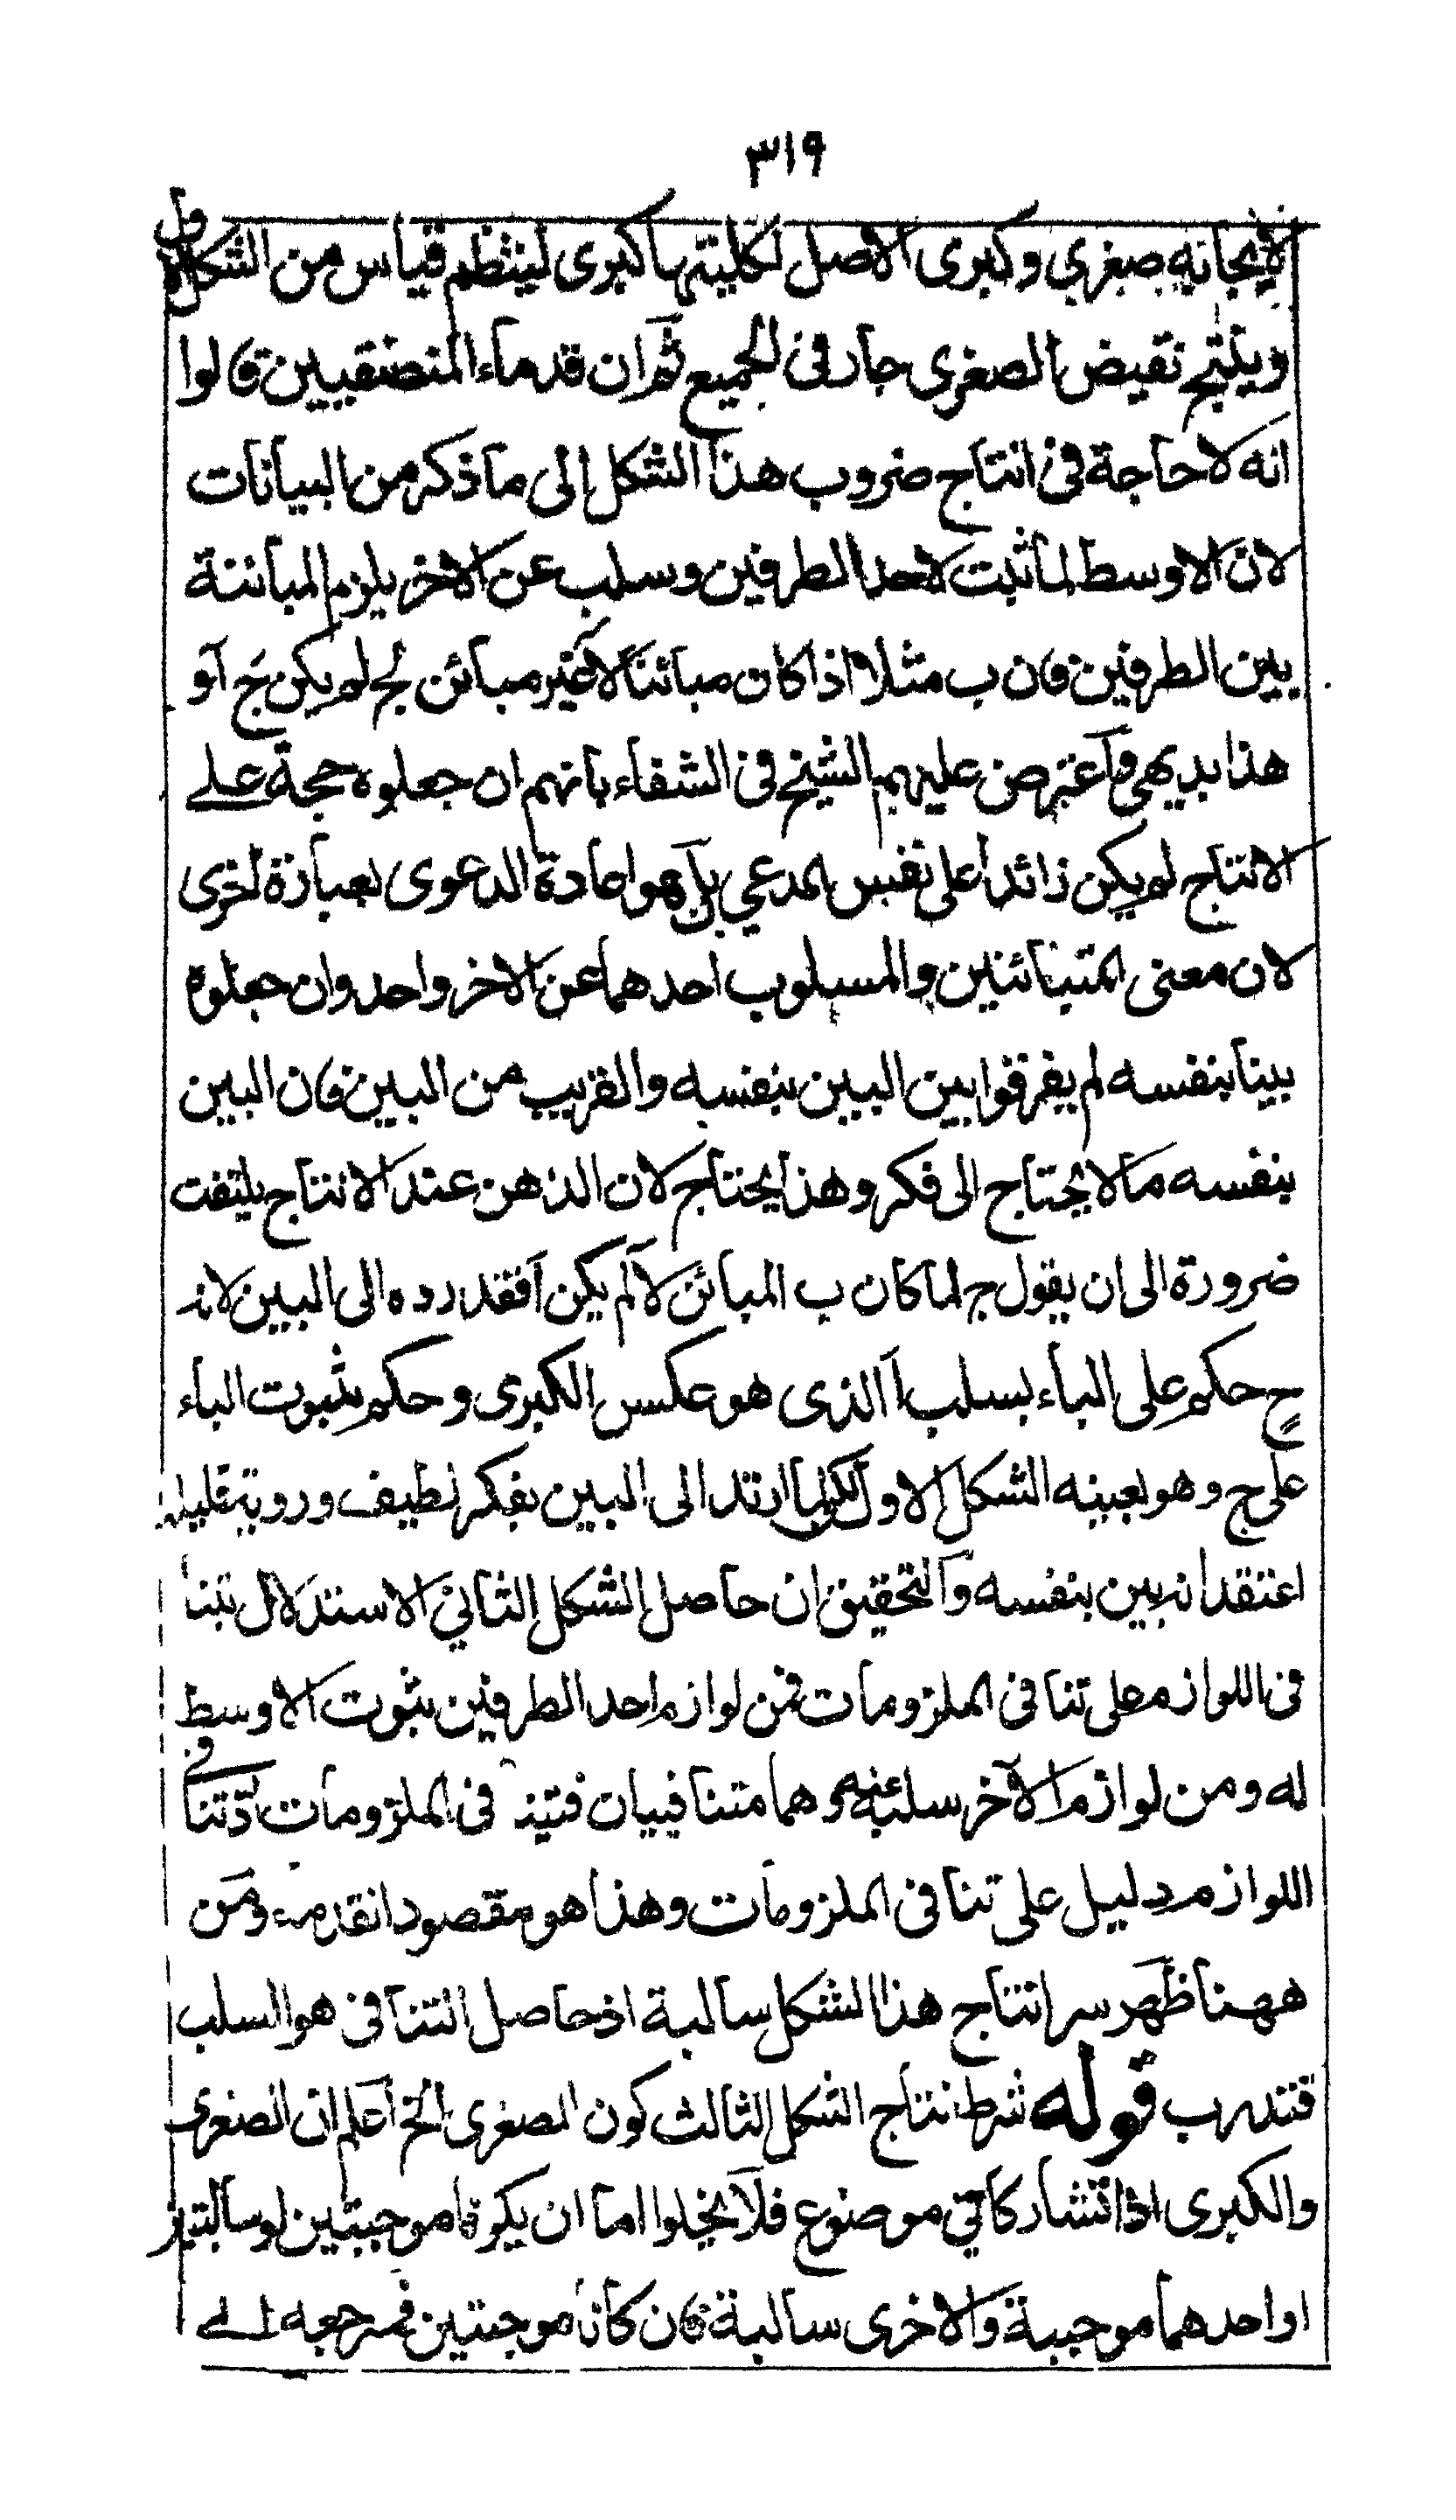 ٣١٩
لايجابيه صغرى وكبرى الاصل لكليتها كبرى لينتظم قياس من الشكل الاول
وينتج نقيض الصغرى جار فى الجميع ثم ان قدماء المنطقيين قالوا
انه لا حاجة فى انتاج ضروب هذا الشكل الى ما ذكر من البيانات
لان الاوسط لما ثبت لاحد الطرفين وسلب عن الاخر يلزم المباينة
بين الطرفين فان ب مثلا اذا كان مبائنا لا غير مبائن لج لم يكن ج آ و
هذا بديهى فاعترض عليهم الشيخ فى الشفاء بانهم ان جعلوه حجة على
الانتاج لم يكن زائدا على نفس المدعي بل هو اعادة الدعوى بعبارة اخرى
لان معنى المتبائنين والمسلوب احدهما عن الاخر واحد وان جعلوه
بينا بنفسه لم يفرقوا بين البين بنفسه والقريب من البين فان البين
بنفسه ما لا يحتاج الى فكر وهذا يحتاج لان الذهن عند الانتاج يلتفت
ضرورة الى ان يقول ج لما كان ب المبائن لآ لم يكن آ فقد رده الى البين لانه
ح حكم على الباء بسلب آ الذى هو عكس الكبرى وحكم بثبوت الباء
على ج وهو بعينه الشكل الاول لكن لما ارتد الى البين بفكر لطيف وروية قليلة
اعتقد انه بين بنفسه والتحقيق ان حاصل الشكل الثاني الاستدلال بتنا
فى اللوازم على تنافى الملزومات فمن لوازم احد الطرفين ثبوت الاوسط
له ومن لوازم الآخر سلبه عنه وهما متنافيان فتين فى الملزومات لان تنافى
اللوازم دليل على تنافى الملزومات وهذا هو مقصود القدماء ومن
ههنا ظهر سر انتاج هذا الشكل سالبة اذ حاصل التنافى هو السلب
فتدرب قوله شرط انتاج الشكل الثالث كون الصغرى الخ اعلم ان الصغرى
والكبرى اذا تشاركا في موضوع فلا يخلوا اما ان يكونا موجبتين او سالبتين
او احدهما موجبة والاخرى سالبة فان كانا موجبتين فمرجعه الے